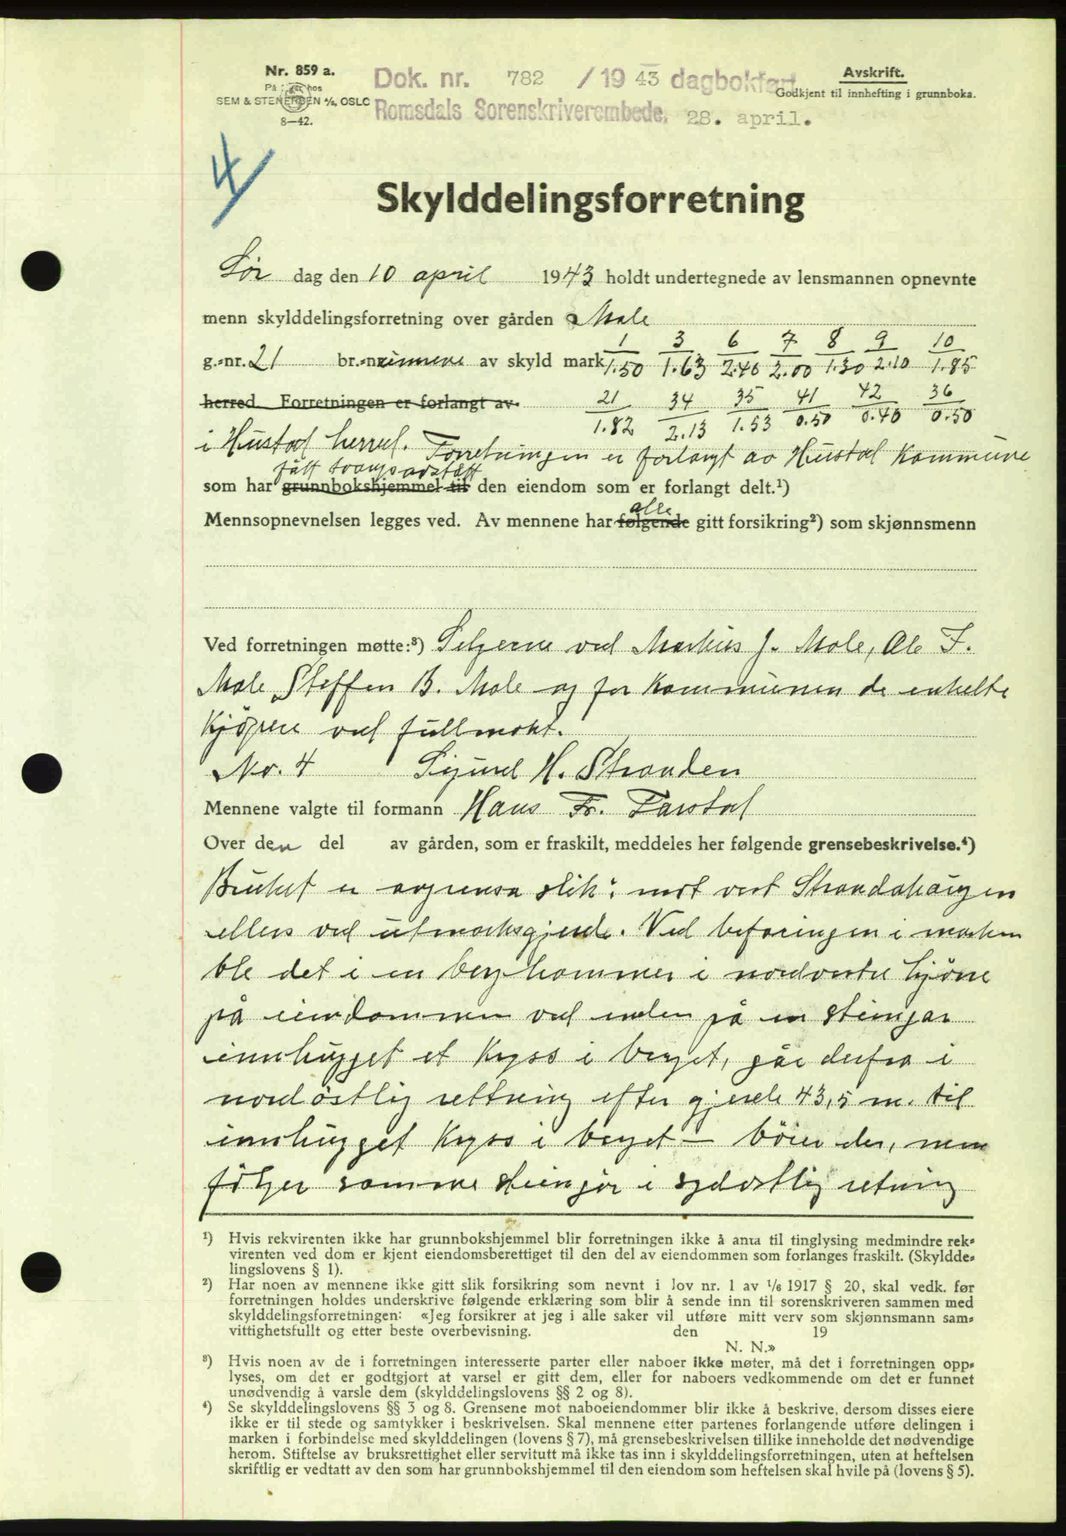 Nr. 859 a.
På lager hos
SEM & STENERSEN A/S, OSLO
8—42.
Dok. nr. 782 / 19 43 dagbokført
Romsdals Sorenskriverembede. 28. april.
Avskrift.
Godkjent til innhefting i grunnboka.
4
Skylddelingsforretning
Lør dag den 10 april 1943 holdt undertegnede av lensmannen opnevnte
menn skylddelingsforretning over gården Male
1 3 6 7 8 9 10
g.-nr. 21 br.-nr. av skyld mark 1.50 1.63 2.40 2.00 1.30 2.10 1.85
herred. Forretningen er forlangt av 21 34 35 41 42 36
1.82 2.13 1.53 0.50 0.40 0.50
i Hustad herred. Forretningen er forlangt av Hustad Kommune
fått
som har grunnbokshjemmel til den eiendom som er forlangt delt.¹)
alle
Mennsopnevnelsen legges ved. Av mennene har følgende gitt forsikring²) som skjønnsmenn
Ved forretningen møtte:³) Selgerne ved Markus J. Male, Ole F.
Male Steffen B. Male og for kommunen de enkelte
kjöpere ved fullmakt.
No. 4 Sigurd H. Stranden
Mennene valgte til formann Hans Fr. Farstad
Over den del av gården, som er fraskilt, meddeles her følgende grensebeskrivelse.⁴)
Bruket er avgrensa slik: mot vest Strandahaugen
ellers ved utmarksgjerde. Ved befaringen i marken
ble det i en berghammer i nordvestre hjörne
på eiendommen ved enden på en steingar
innhugget et kryss i berget, går derfra i
nordöstlig rettning efter gjerde 43,5 m. til
innhugget kryss i berget – böier der, men
fölger samme steingar i sydostlig retning
¹) Hvis rekvirenten ikke har grunnbokshjemmel blir forretningen ikke å anta til tinglysing medmindre rek-
virenten ved dom er kjent eiendomsberettiget til den del av eiendommen som forlanges fraskilt. (Skyldde-
lingslovens § 1).
²) Har noen av mennene ikke gitt slik forsikring som nevnt i lov nr. 1 av 1/6 1917 § 20, skal vedk. før
forretningen holdes underskrive følgende erklæring som blir å sende inn til sorenskriveren sammen med
skylddelingsforretningen: «Jeg forsikrer at jeg i alle saker vil utføre mitt verv som skjønnsmann sam-
vittighetsfullt og etter beste overbevisning. den 19
N. N.»
³) Hvis noen av de i forretningen interesserte parter eller naboer ikke møter, må det i forretningen opp-
lyses, om det er godtgjort at varsel er gitt dem, eller for naboers vedkommende om det er funnet
unødvendig å varsle dem (skylddelingslovens §§ 2 og 8).
⁴) Se skylddelingslovens §§ 3 og 8. Grensene mot naboeiendommer blir ikke å beskrive, dersom disses eiere
ikke er til stede og samtykker i beskrivelsen. Skal mennene etter partenes forlangende utføre delingen i
marken i forbindelse med skylddelingen (lovens § 7), må grensebeskrivelsen tillike inneholde det nødvendige
herom. Stiftelse av bruksrettighet eller servitutt må ikke tas inn i skylddelingsforretningen, uten at heftelsen
skriftlig er vedtatt av den som har grunnbokshjemmel til den eiendom som heftelsen skal hvile på (lovens § 5).